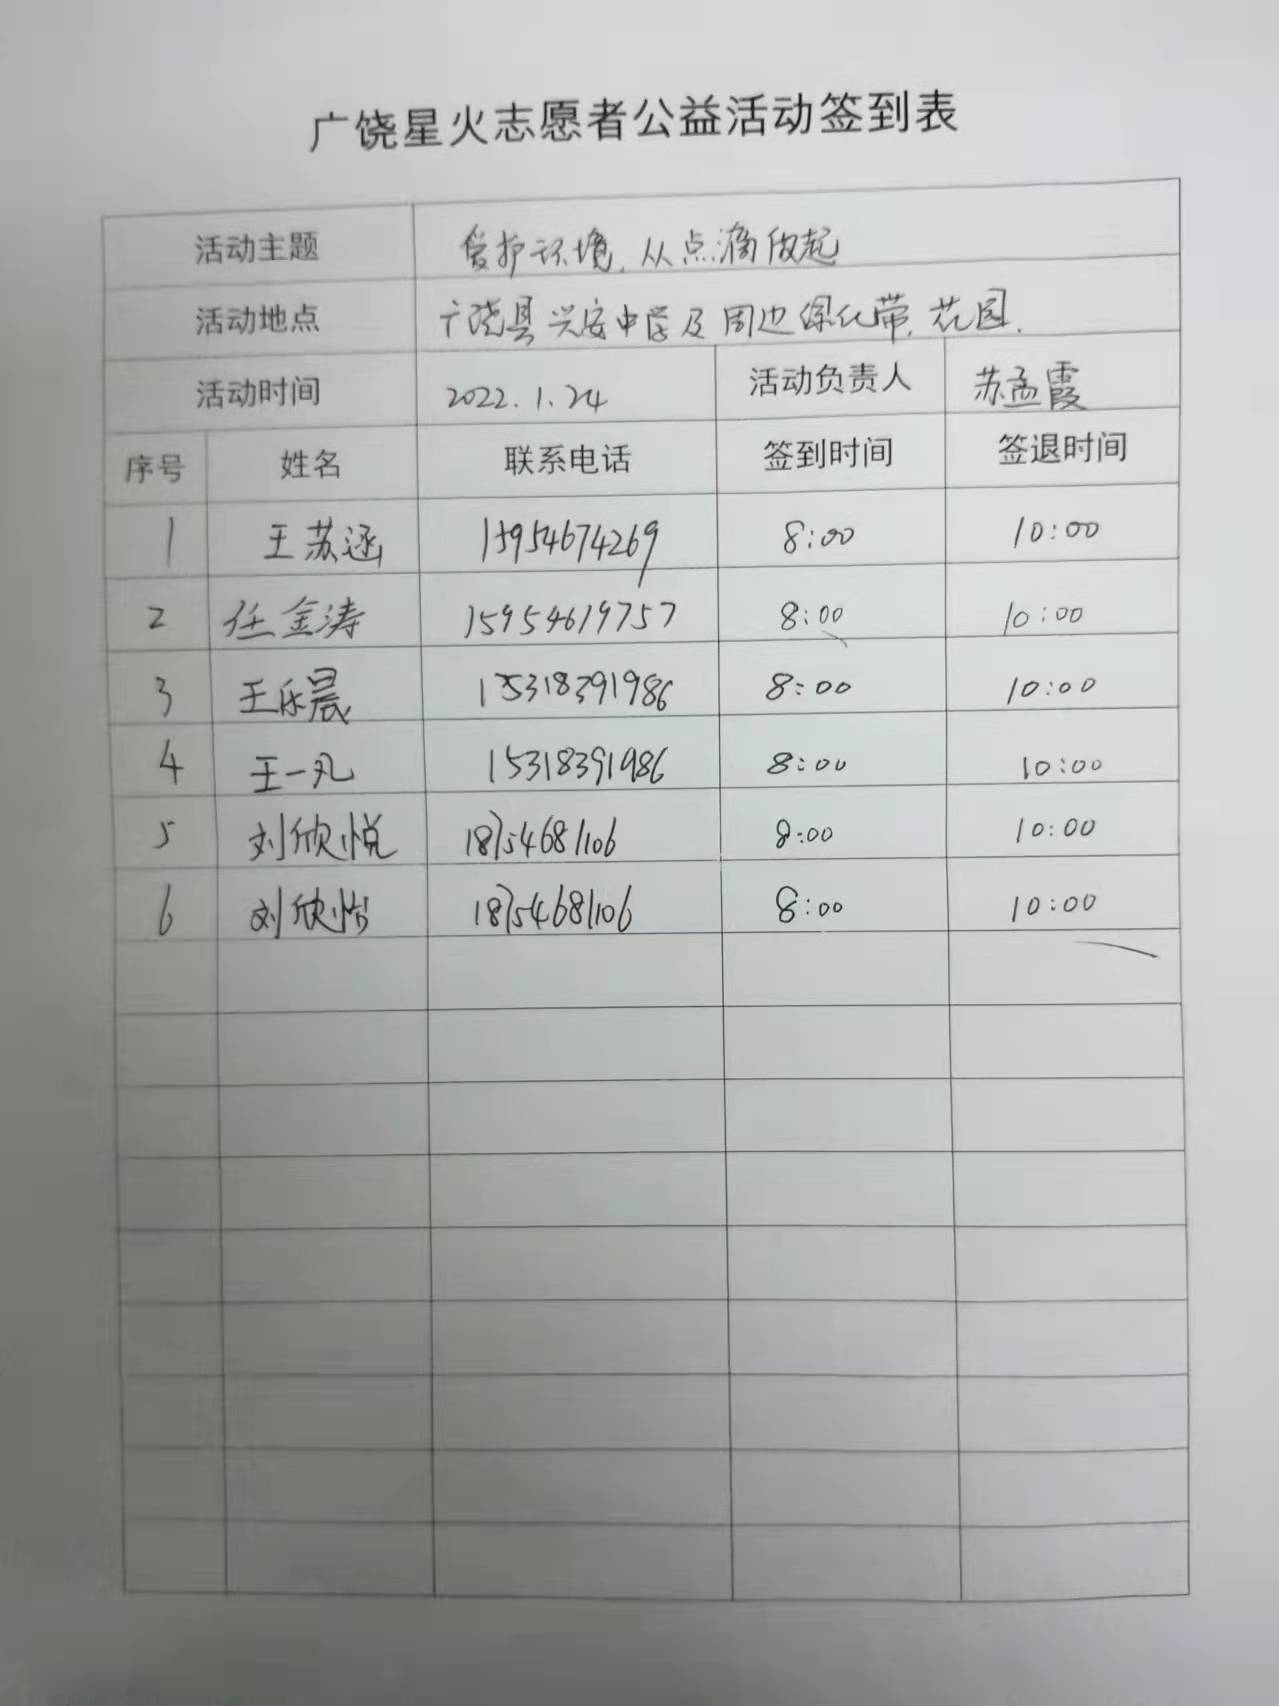 广饶星火志愿者公益活动签到表
活动主题 爱护环境,从点滴做起
活动地点 广饶县兴安中学及周边绿化带,花园.
活动时间 2022.1.24 活动负责人 苏孟霞
序号 姓名 联系电话 签到时间 签退时间
1 王苏涵 15954674269 8:00 10:00
2 任金涛 15954619757 8:00 10:00
3 王乐晨 15318391986 8:00 10:00
4 王一凡 15318391986 8:00 10:00
5 刘欣悦 18754681106 8:00 10:00
6 刘欣怡 18754681106 8:00 10:00